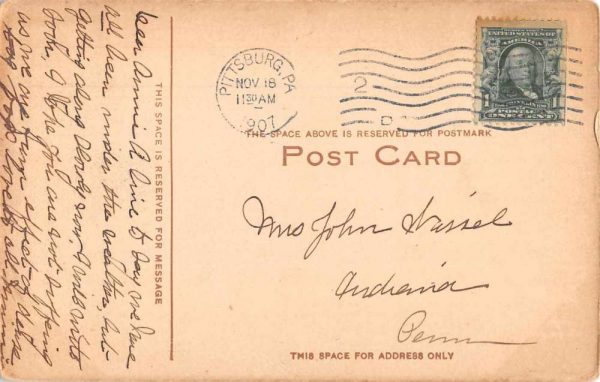 PITTSBURG, PA.
NOV 18
11 30 AM
1907
2
D
UNITED STATES OF
AMERICA
POSTAGE
ONE CENT
THE SPACE ABOVE IS RESERVED FOR POSTMARK
POST CARD
Mrs John
Indiana
Penn
THIS SPACE FOR ADDRESS ONLY
THIS SPACE IS RESERVED FOR MESSAGE
Dear Annie & to day we have
all been under the weather, but
getting along now I will write
soon, I hope you are not suffering
as we are from effect of
Love to all